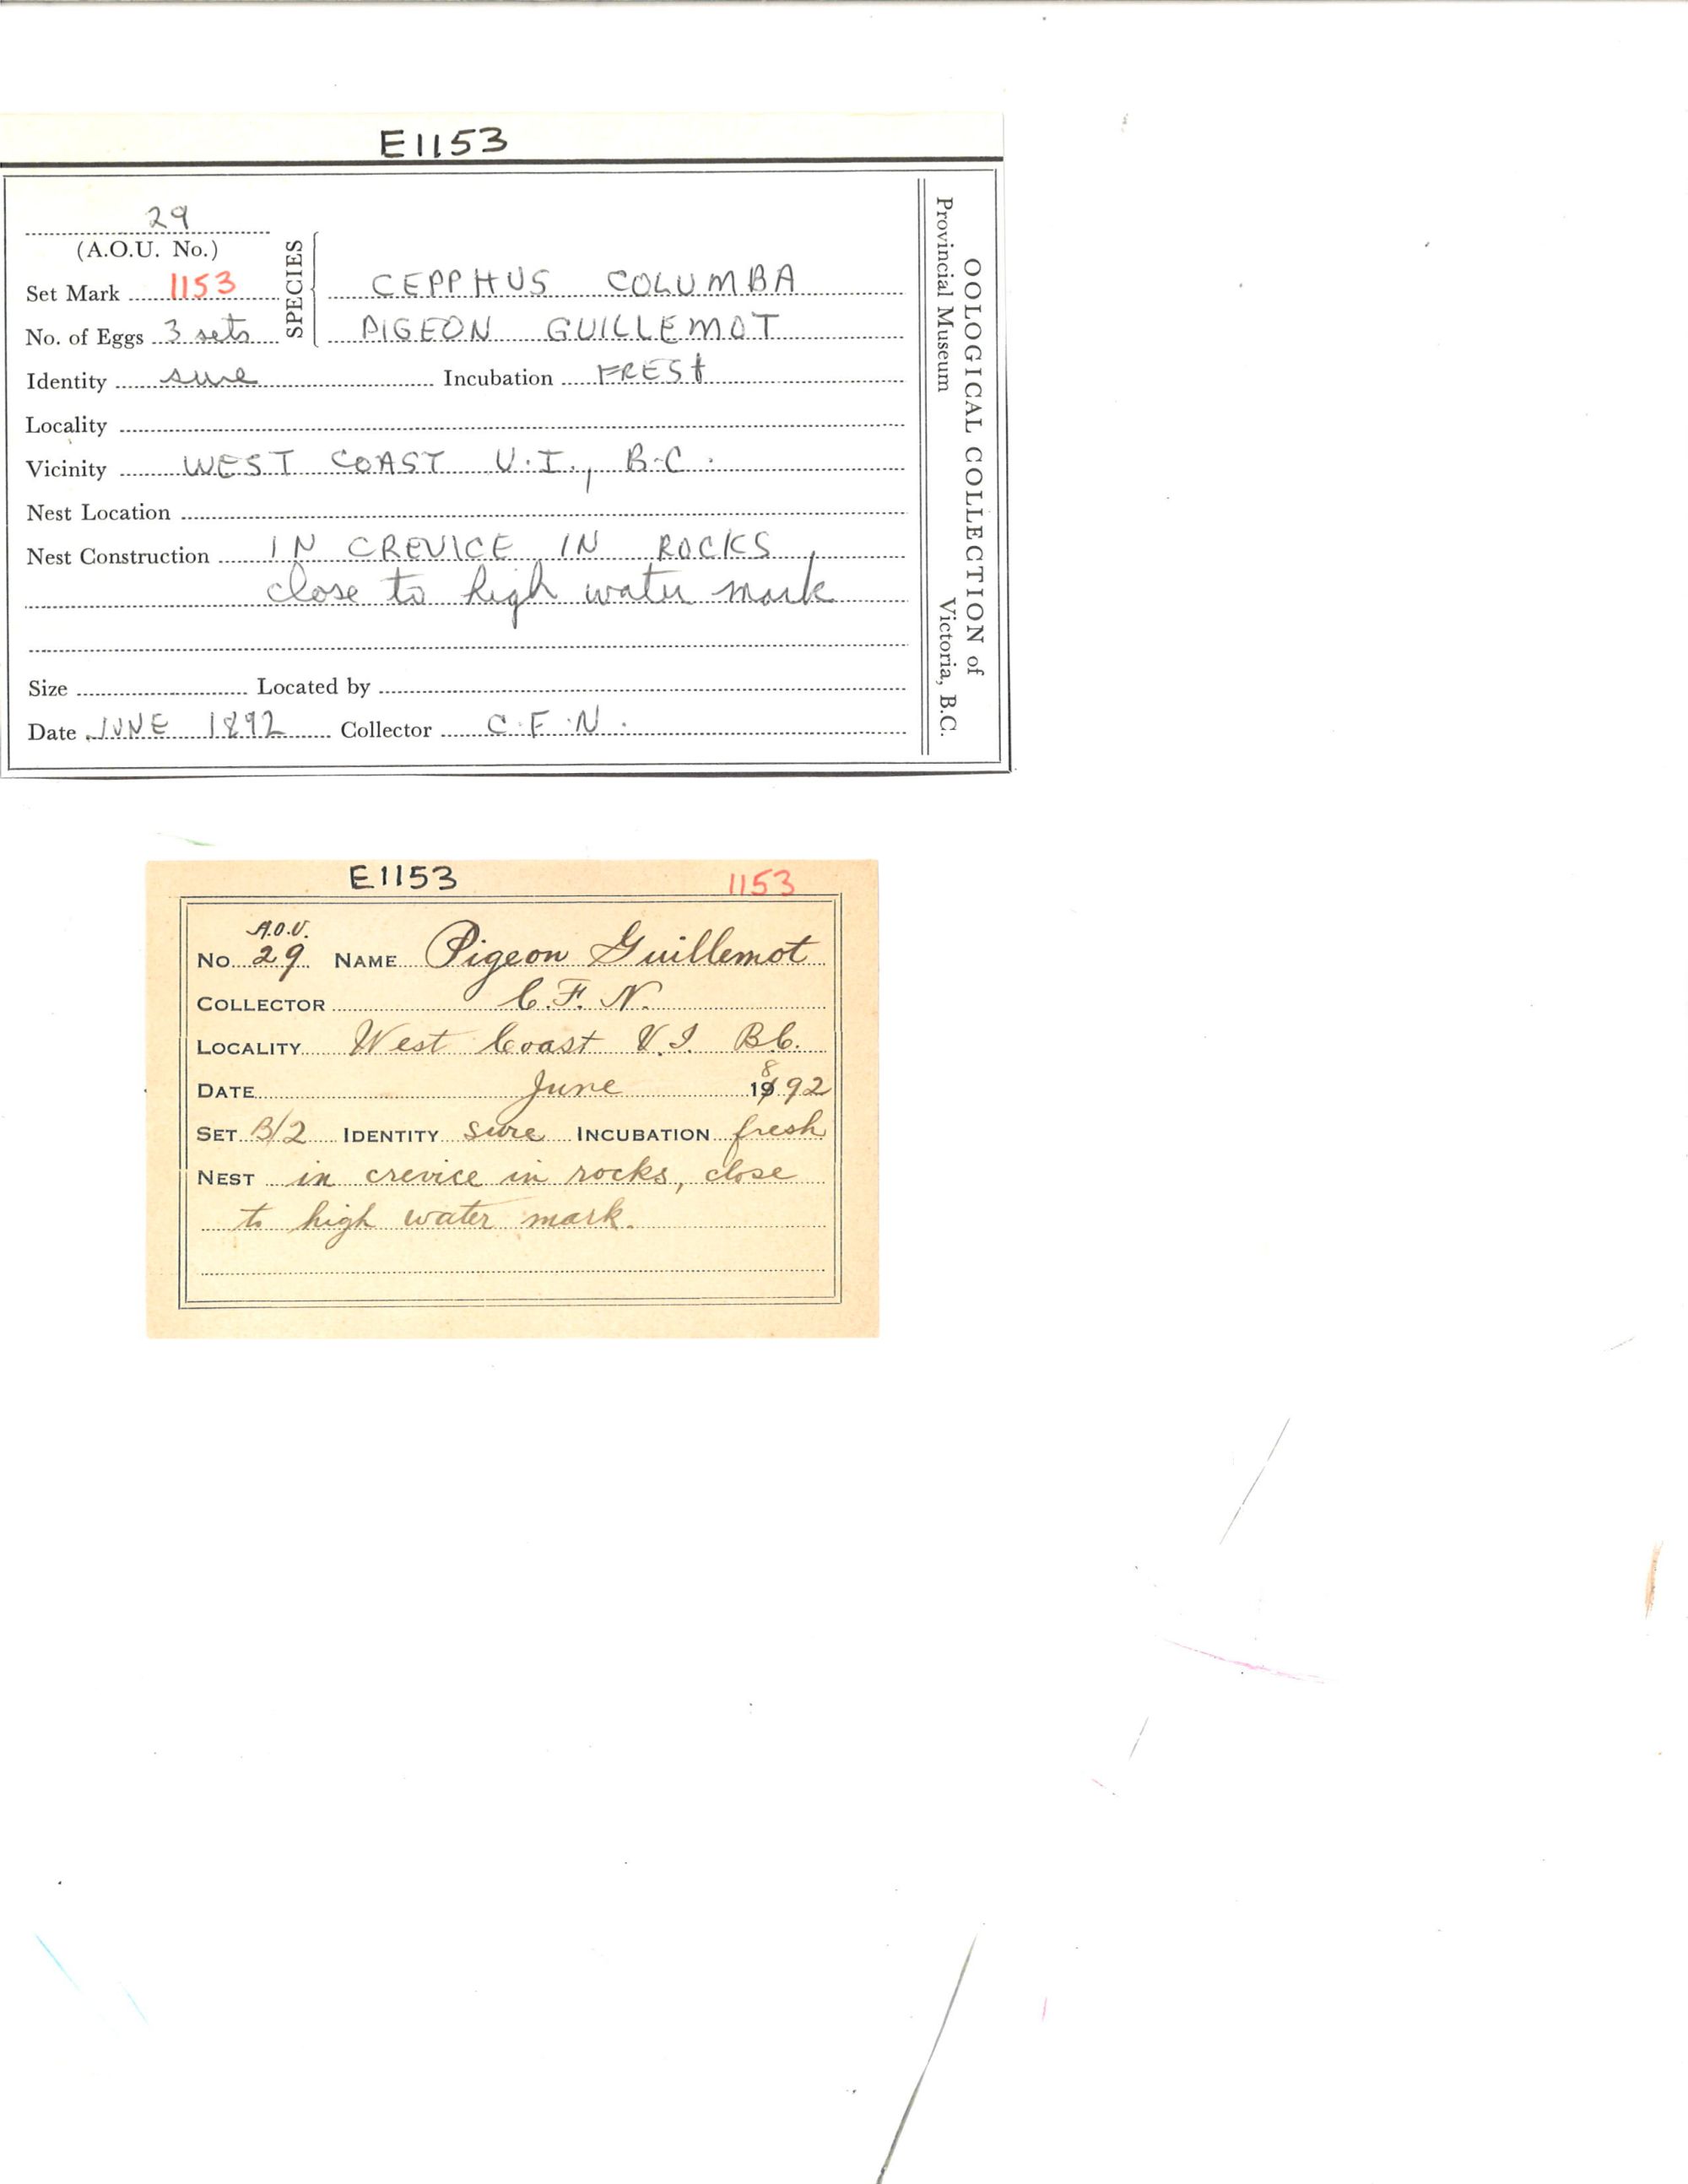 E1153
29
(A.O.U. No.)
Set Mark 1153
No. of Eggs 3 sets
SPECIES
CEPPHUS COLUMBA
PIGEON GUILLEMOT
Identity sure Incubation FRESH
Locality
Vicinity WEST COAST V.I., B.C.
Nest Location
Nest Construction IN CREVICE IN ROCKS,
close to high water mark
Size Located by
Date JUNE 1892 Collector C.F.N.
OOLOGICAL COLLECTION of
Provincial Museum Victoria, B.C.
E1153 1153
A.O.U.
No. 29 NAME Pigeon Guillemot
COLLECTOR C.F.N.
LOCALITY West Coast V.I. BC.
DATE June 1892
SET B/2 IDENTITY sure INCUBATION fresh
NEST in crevice in rocks, close
to high water mark.